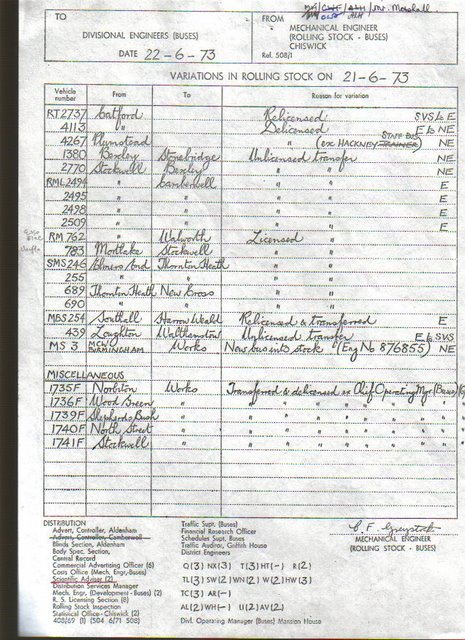 TO
DIVISIONAL ENGINEERS (BUSES)
DATE 22-6-73
Mr. Marshall.
FROM
MECHANICAL ENGINEER
(ROLLING STOCK - BUSES)
CHISWICK
Ref. 508/1
VARIATIONS IN ROLLING STOCK ON 21-6-73
Vehicle number From To Reason for variation
RT2737 Catford Relicensed SVS to E
4113 " Delicensed E to NE
4267 Plumstead " (ex HACKNEY TRAINER) STAFF BUS NE
1380 Bexley Stonebridge Unlicensed transfer NE
2770 Stockwell Bexley " " NE
RML2494 " Camberwell " " E
2495 " " " " E
2498 " " " " E
2509 " " " " E
RM 762 " Walworth Licensed "
783 Mortlake Stockwell " "
SMS246 Elmers End Thornton Heath " "
255 " " " "
689 Thornton Heath New Cross " "
690 " " " "
MBS254 Southall Harrow Weald Relicensed & transferred E
439 Loughton Walthamstow Unlicensed transfer E to SVS
MS 3 MCW BIRMINGHAM Works New bus into stock (Eng No 876855) NE
MISCELLANEOUS
1735F Norbiton Works Transferred & delicensed ex Chief Operating Mgr. (Buses)
1736F Wood Green " " " " " " "
1739F Shepherds Bush " " " " " " "
1740F North Street " " " " " " "
1741F Stockwell " " " " " " "
DISTRIBUTION
Advert. Controller, Aldenham
Advert. Controller, Camberwell
Blinds Section, Aldenham
Body Spec. Section,
Central Record
Commercial Advertising Officer (6)
Costs Office (Mech. Engr. Buses)
Scientific Adviser (2)
Distribution Services Manager
Mech. Engr. (Development - Buses) (2)
R. S. Licensing Section (8)
Rolling Stock Inspection
Statistical Office - Chiswick (2)
408/69 (1) (504 6/71 508)
Traffic Supt. (Buses)
Financial Research Officer
Schedules Supt. Buses
Traffic Auditor, Griffith House
District Engineers
Q(3) NX(3) T(3) HT(-) R(2)
TL(3) SW(2) WN(2) W(2) HW(3)
TC(3) AR(-)
AL(2) WH(-) U(2) AV(2)
Divl. Operating Manager (Buses) Mansion House
C. F. Greystock
MECHANICAL ENGINEER
(ROLLING STOCK - BUSES)